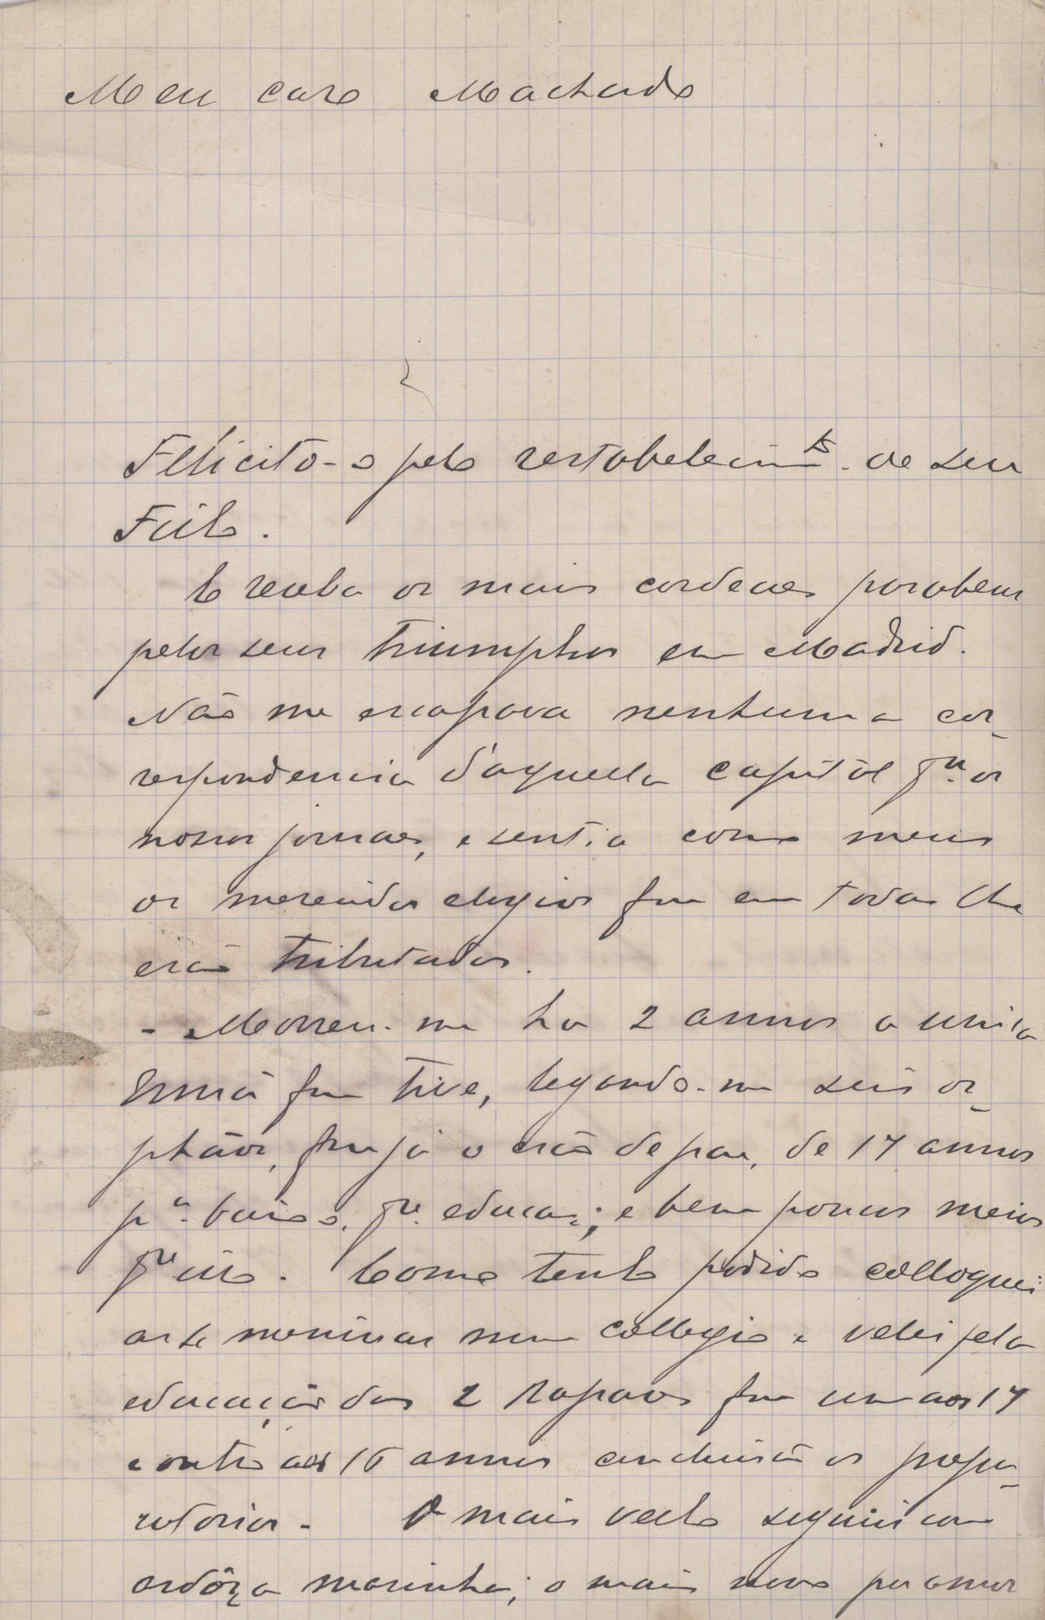 Meu caro Machado
Felicito-o pelo restabelecimto. de seu
Filho.
E receba os mais cordeaes parabens
pelos seus triumphos em Madrid.
Não me escapava nenhuma cor-
respondencia d'aquella capital pa. os
nossos jornaes, e sentia como meus
os merecidos elogios que em todas lhe
erão tributados.
- Morreu-me ha 2 annos a unica
Irmã que tive, legando-me seis or-
phãos, que já o erão de pae, de 17 annos
pa. baixo, pa. educar; e bem poucos meios
pa. isso. Como tenho podido colloquei
as 4 meninas num collegio e velei pela
educação dos 2 rapazes que um aos 17
e outro aos 16 annos concluirão os prepa-
ratorios. O mais velho seguiu com
ardôr a marinha; o mais novo por amor